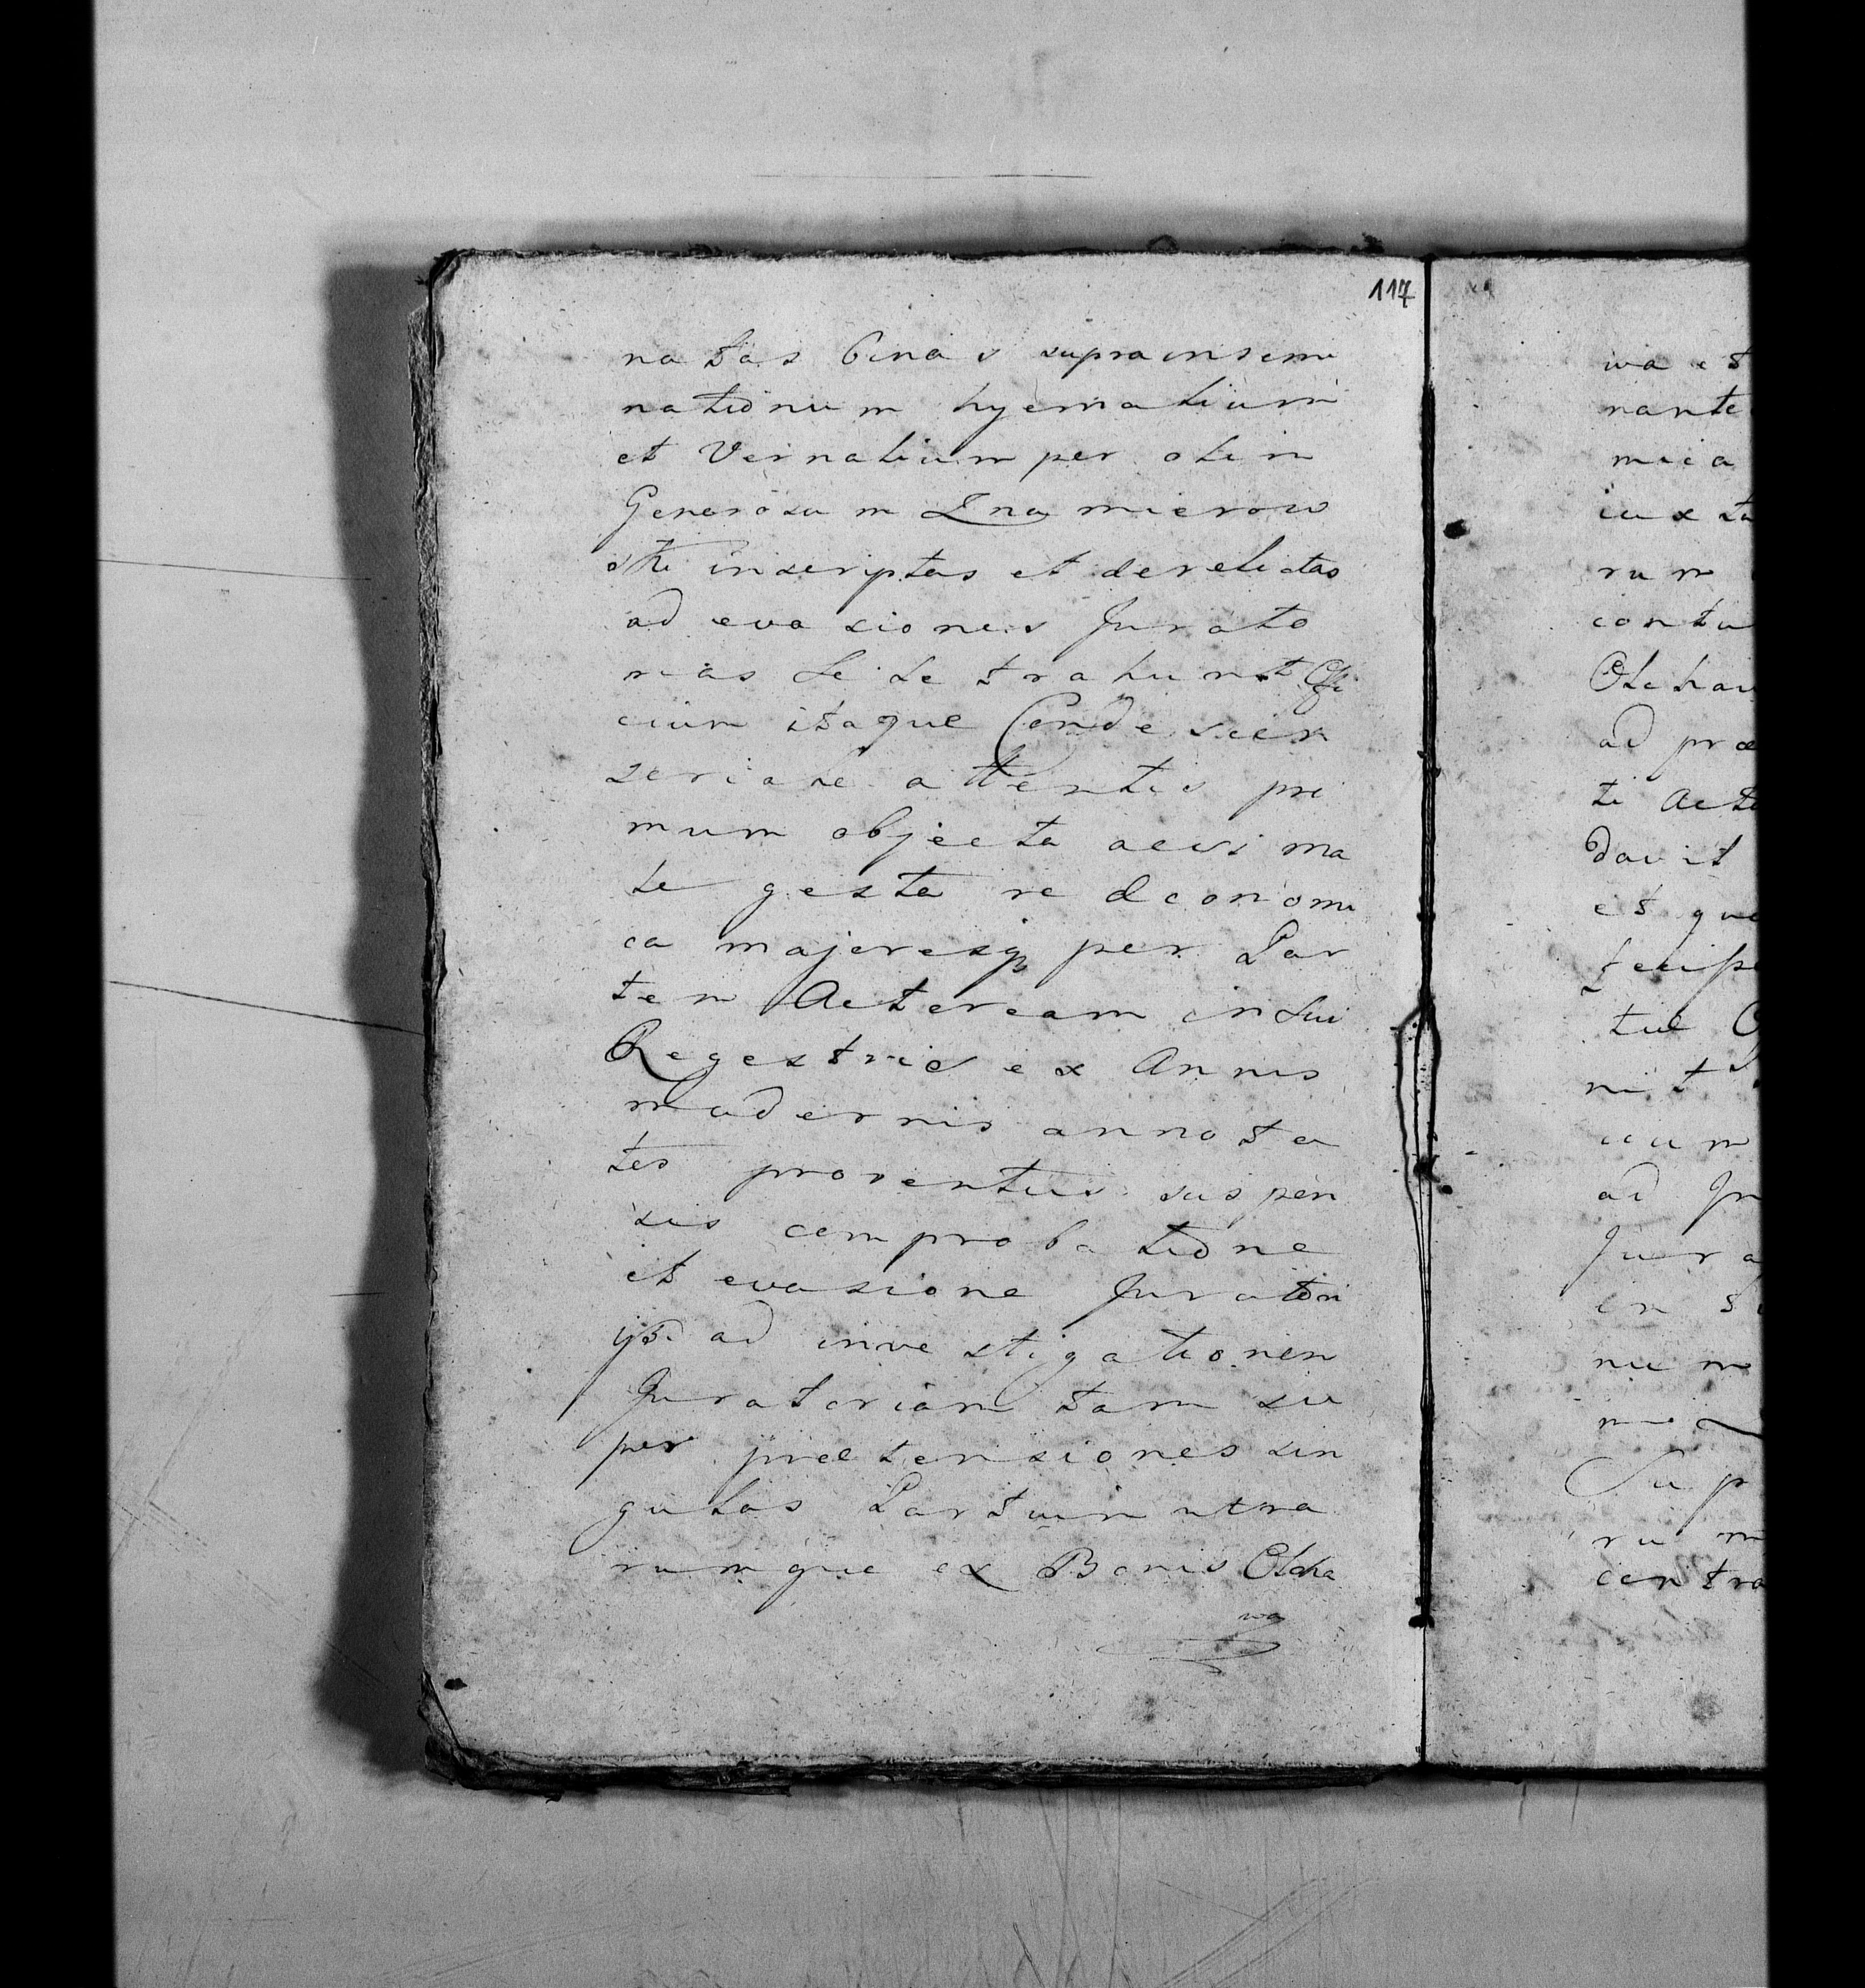 117
natas binas suprainsemi
nationum hyemalium
et Vernalium per olim
Generosum Znamierow
ski inscriptas et derelictas
ad evasiones Jurato
rias se se trahunt Offi
cium itaque Condescen
seriale attentis pri
mum objecta acsi ma
le gesta re oeconomi
ca majoresq per Par
tem Actoream in sui
Regestris ex Annis
modernis annota
tos proventus suspen
sis comprobatione
et evasione Juratori
js ad investigationem
Juratoriam tam su
per praetensiones sin
gulas Partium utra
rumque ex Bonis Olcha
wa
wa et
nante
mica
iuxta
rum
contu
Olchaw
ad prae
ti Acto
davit
et que
tecipe
tul
nit
cum
ad Ju
Jura
in
num
Sup
rum
contra